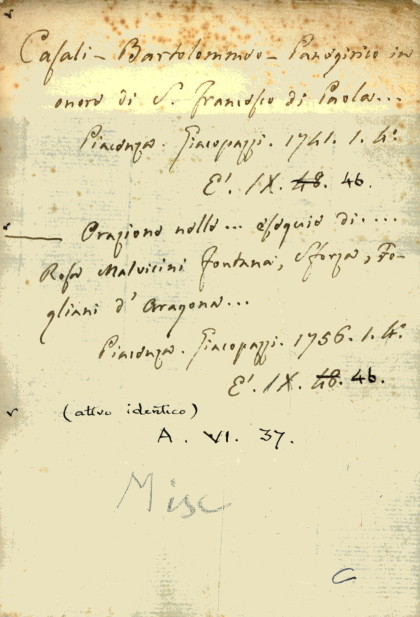 Casali - Bartolommeo - Panegirico in
onore di S. Francesco di Paola...
Piacenza. Giacopazzi. 1741. 1. 4°.
E'. IX. 48. 46.
— Orazione nelle... esequie di....
Rosa Malvicini Fontana, Sforza, Fo-
gliani d'Aragona...
Piacenza. Giacopazzi. 1756. 1. 4°.
E'. IX. 48. 46.
(altro identico)
A. VI. 37.
Misc
C